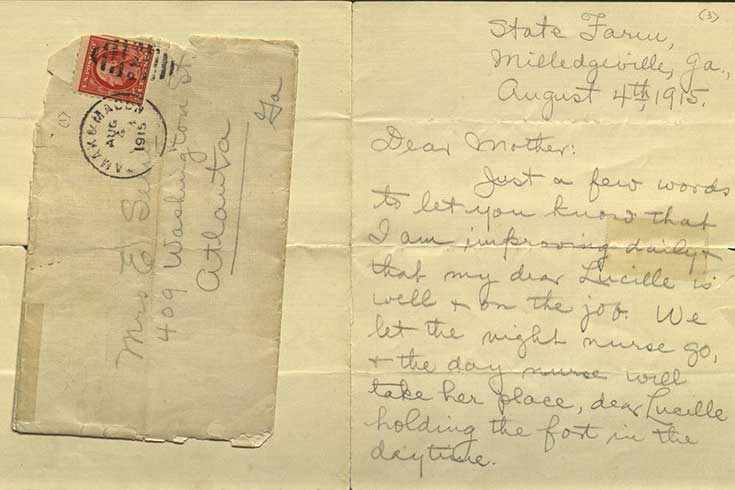 AMAK & MACON
AUG
4
1915
Mrs E
409 Washington St
Atlanta
Ga
(3)
State Farm,
Milledgeville, Ga.,
August 4th, 1915.
Dear Mother:
Just a few words
to let you know that
I am improving daily +
that my dear Lucille is
well + on the job. We
let the night nurse go,
+ the day nurse will
take her place, dear Lucille
holding the fort in the
daytime.